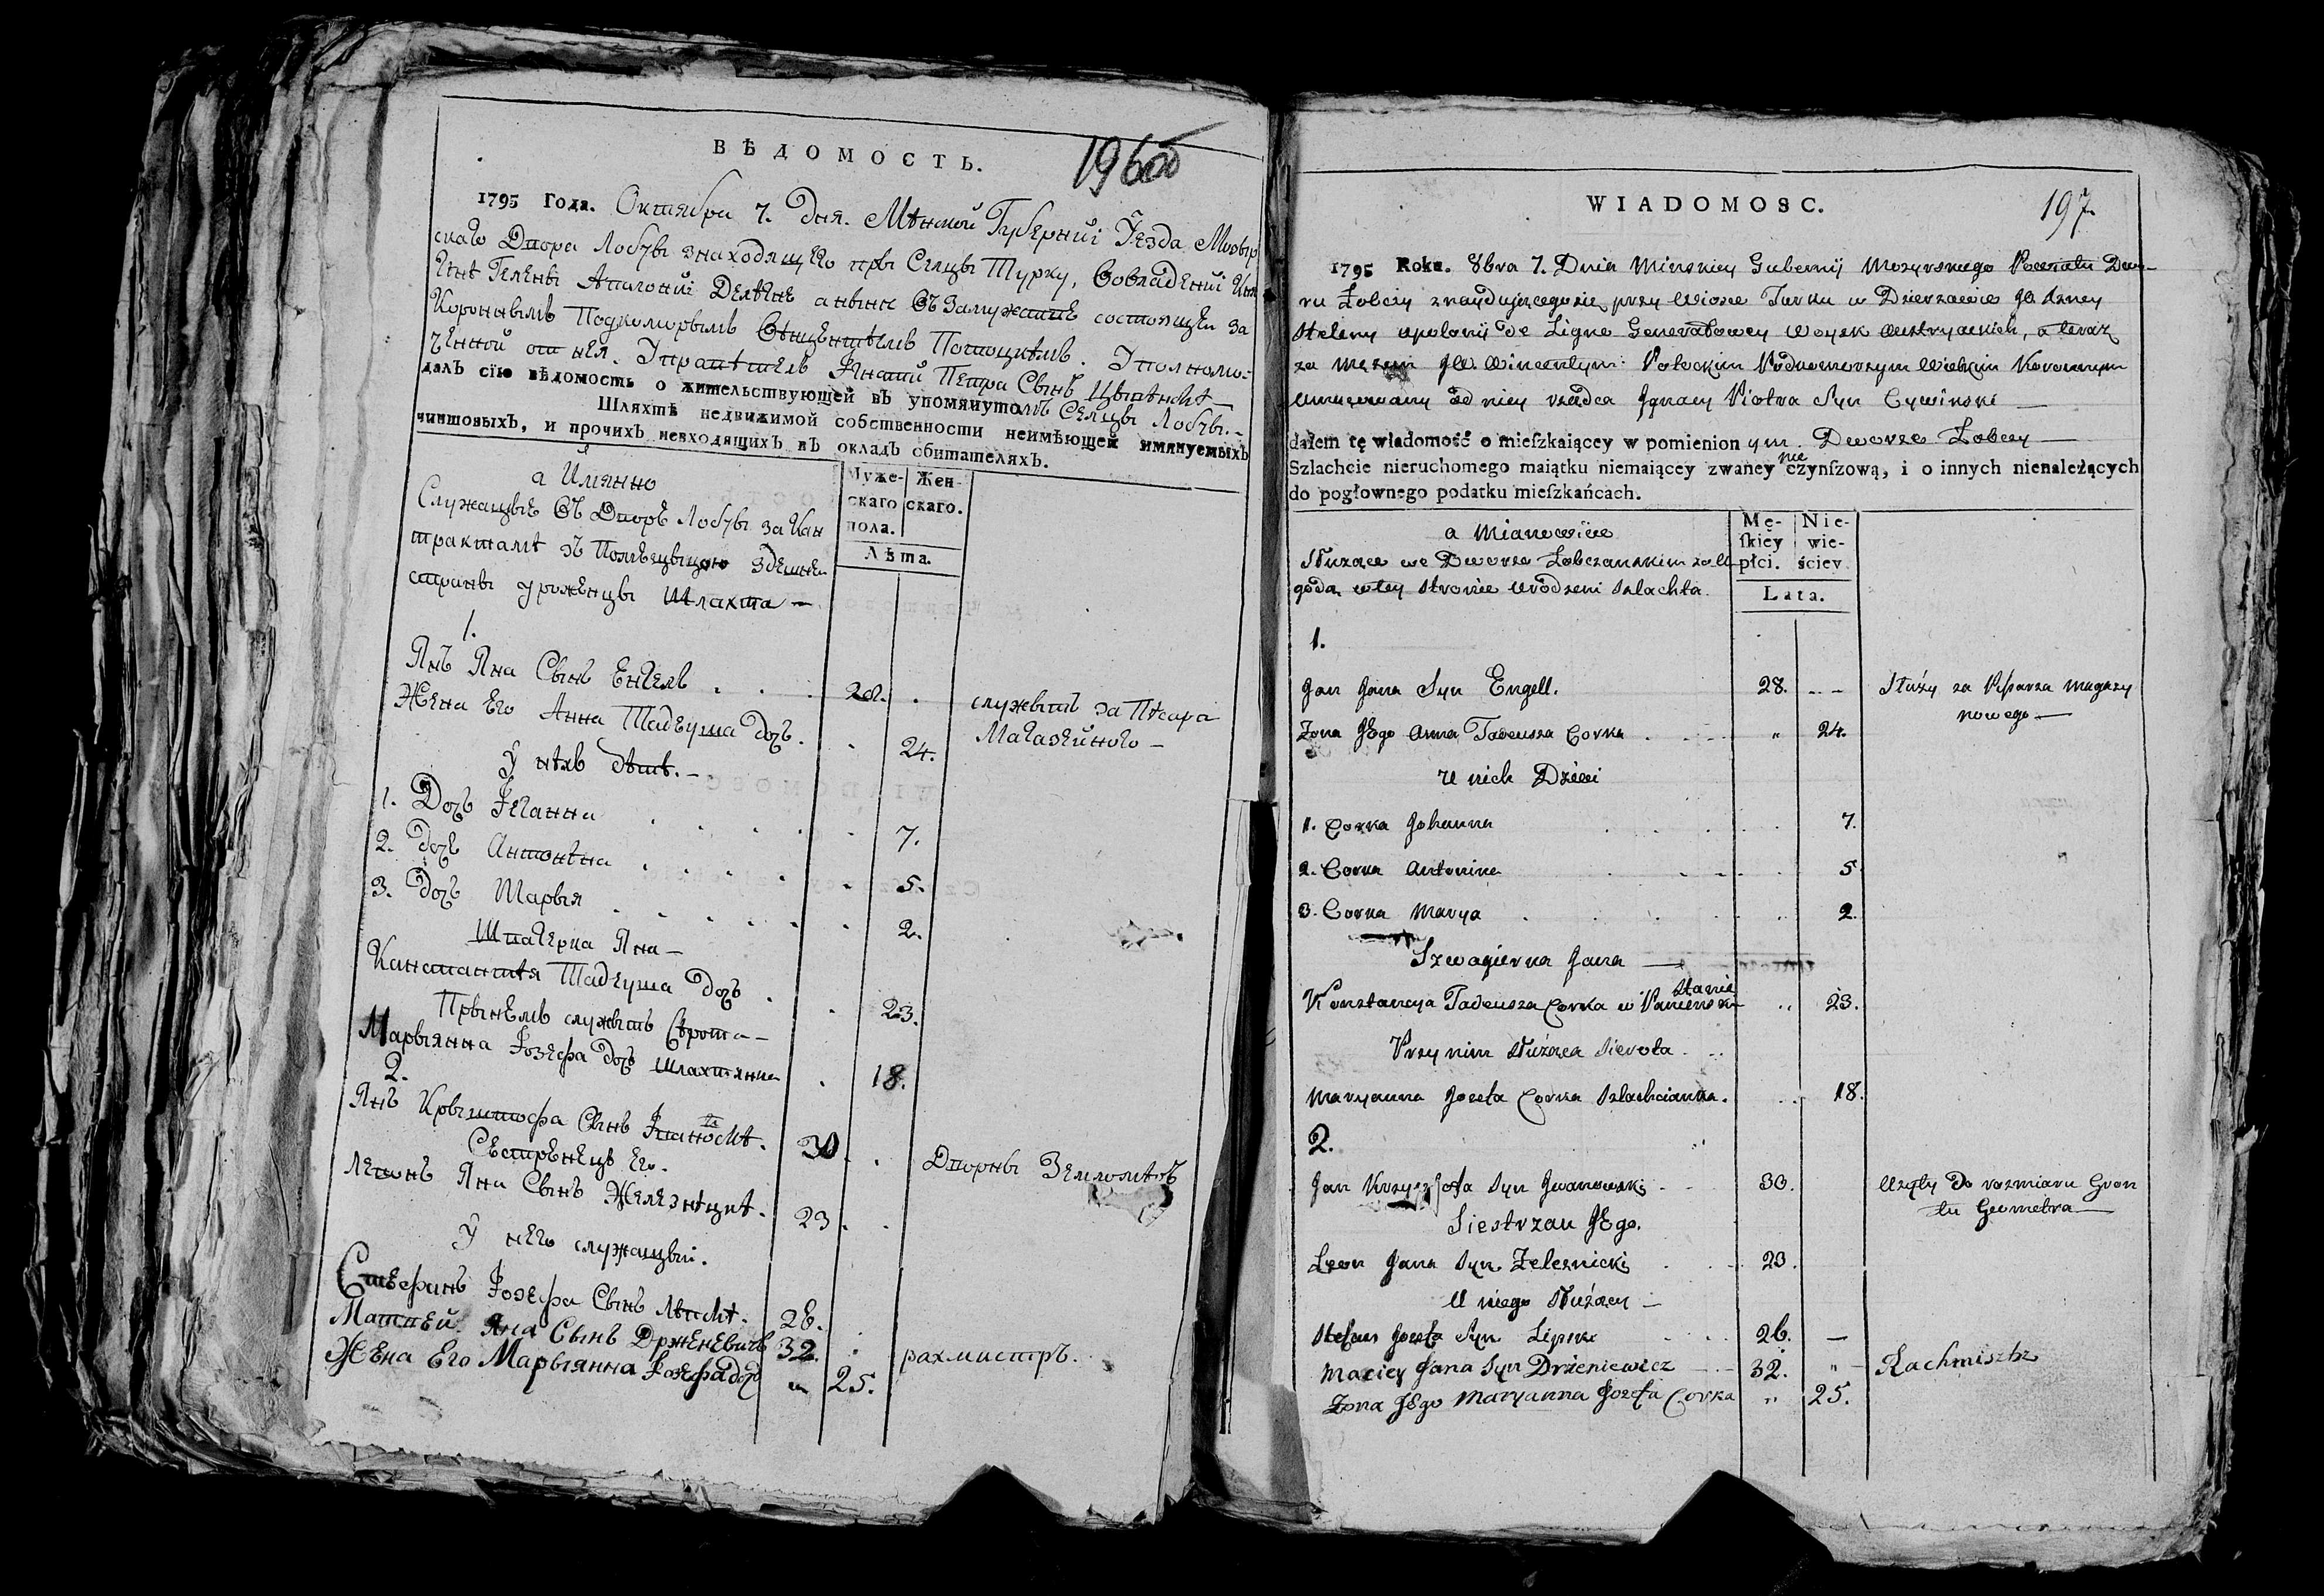 ВѢДОМОСТЬ.
1795 Года. Октября 7. Дня. Мѣнской Губерниі Уезда Мозыр
скаго Двора Лобчы знаходящего пры Селцы Турку,
Гелены Апалониі
Короннымъ Подкоморымъ Потоцкѣмъ.
от нея. Управѣтель Петра Сынъ Цывѣнскѣ
далъ сїю вѣдомость о жительствующей въ упомянутомъ Селцы Лобчы.
Шляхтѣ недвижимой собственности неимѣющей имянуемыхъ
чиншовыхъ, и прочихъ невходящихъ въ окладъ обитателяхъ.
а Имянно
Служащые въ Дворѣ Лобчы за Кан
трактамѣ здешнеи
страны уроженцы Шляхта —
Муже- Жен-
скаго скаго.
пола.
Лѣта.
1.
Янъ Яна Сынъ Енгель . . 28. . служытъ за Пѣсара
Магазейного —
Жена Его Анна Тадеуша дочь. . 24.
У нѣхъ дѣтѣ. —
1. Дочь Іоганна . . . . . 7.
2. дочь Антонѣна . . . . . 5.
3. дочь Марыя . . . . . . 2.
Швагерка Яна —
Канстанцѣя Тадеуша дочь . . 23.
Пры немъ служытъ Сѣрота —
Марыянна Іозефа дочь шляхтянка . 18.
2.
Янъ Крыштофа Сынъ Івановскѣ. 30. . Дворны Землемѣръ
Сестренецъ Его.
Леонъ Яна Сынъ Железнѣцкѣ. 23. .
У него служащыи.
Стефанъ Іозефа Сынъ Лѣпскѣ. 26.
Матвей Яна Сынъ Држеневичъ 32. . рахмистръ.
Жена Его Марыянна Іозефа дочь „ 25.
WIADOMOSC. 197.
1795 Roku. 8bra 7. Dnia Minskiey Gubernij Mozyrskiego Powiatu Dwo-
ru Łobczy znayduiącego się przy Wiosce Turku w Dzierzawie
Heleny Apolonij de Ligne Generałowey Woysk Austryackich, a teraz
za Mężem JW. Wincentym Potockim Podkomorzym Wielkim Koronnym
od niey rządca Jgnacy Piotra Syn Cywinski —
dałem tę wiadomość o mieſzkaiącey w pomienionym Dworze Łobczy —
Szlachcie nieruchomego maiątku niemaiącey zwaney nie czynſzową, i o innych nienależących
do pogłownego podatku mieſzkańcach.
a Mianowicie
Służące we Dworze Łobczanskim za U
goda, w tey stronie urodzeni szlachta.
Mę- Nie-
ſkiey wie-
płci. ściey
Lata.
1.
Jan Jana Syn Engell. 28. - - Służy za Pisarza magazy
nowego —
Zona JEgo Anna Tadeusza Corka . . „ 24.
u nich Dzieci
1. Corka Johanna . . . . . 7.
2. Corka Antonina . . . . 5
3. Corka Marya . . . . . 2.
Szwagierka Jana —
Konstancya Tadeusza Corka w Panienskim stanie „ 23.
Przy nim służąca sierota . .
Maryanna Jozefa Corka Szlachcianka. . . 18.
2.
Jan Krzysztofa Syn Jwanowski . 30. Użyty do rozmiaru Gron
tu Geometra —
Siestrzan JEgo.
Leon Jana Syn Zeleznicki . . 23.
U niego służący —
Stefan Jozefa Syn Lipski . . . 26. —
Maciey Jana Syn Drżeniewicz — . — 32. „ — Rachmistrz
Zona JEgo Maryanna Jozefa Corka „ 25.